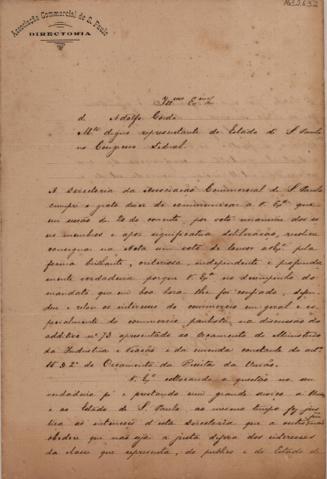 Associação Commercial de S. Paulo
DIRECTORIA
Illmo Exmo Sr
d. Adolfo Gordo
M. digno representante do Estado de S. Paulo
no Congresso Federal
A Directoria da Associação Commercial de S. Paulo
cumpre o grato dever de communicar a V. Exª que
em sessão de 20 do corrente, por voto unanime dos se
us membros e após significativa deliberação, resolveu
consignar na Acta um voto de louvor a V. Exª pela
forma brilhante, criteriosa, independente e profunda
mente verdadeira porque V. Exª no desempenho do
mandato que em boa hora lhe foi confiado, defen
deu e zelou os interesses do commercio em geral e es
pecialmente do commercio paulista, na discussão do
additivo nº 73 apresentado ao Orçamento do Ministerio
da Industria e Viação e da emenda constante do art.
§ 2º do Orçamento da Receita da União.
V. Exª collocando a questão no seu
verdadeiro pé e prestando um grande serviço a União
e ao Estado de S. Paulo, ao mesmo tempo fez jus
tiça as intenções d'esta Directoria que a outro
não seja a justa defesa dos interesses
da classe que representa, do publico e do Estado de